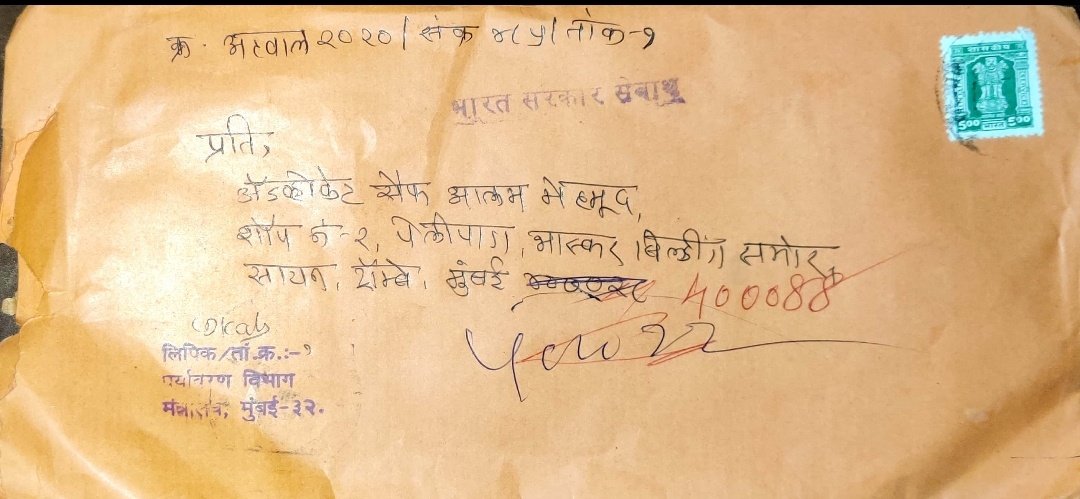 क्र. अहवाल २०२०/संक्र ४८५/तांक-१
भारत सरकार सेवार्थ
शासकीय
5 00 भारत 5 00
प्रति,
ॲडव्होकेट सैफ आलम मेहमूद,
शॉप नं-२, पेलीपाग, भास्कर बिल्डींग समोर,
सायन, ट्रॉम्बे, मुंबई 400088
लिपिक/तां.क्र.:-१
पर्यावरण विभाग
मंत्रालय, मुंबई-३२.